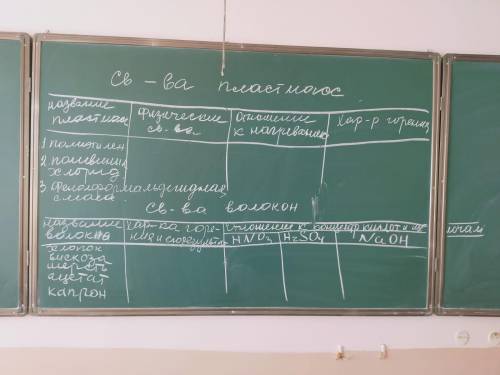 Св-ва пластмасс
название пластмасс
физические св-ва
Отношение к нагреванию
Хар-р горения
1 полиэтилен
2 поливинил хлорид
3 Фенолоформальдегидная смола
Св-ва волокон
название волокна
Хар-ка горения и
Отношение к концентр кислот и ще
лочам
HNO3
H2SO4
NaOH
хлопок
вискоза
шерсть
ацетат
капрон